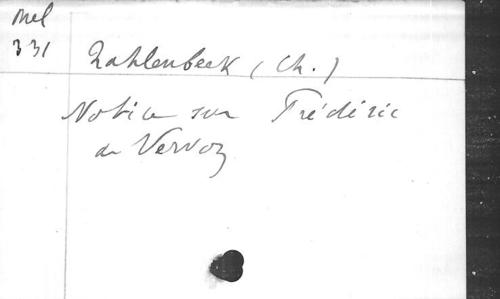 Mel
331
Rahlenbeck (Ch.)
Notice sur Frédéric
de Vervoz